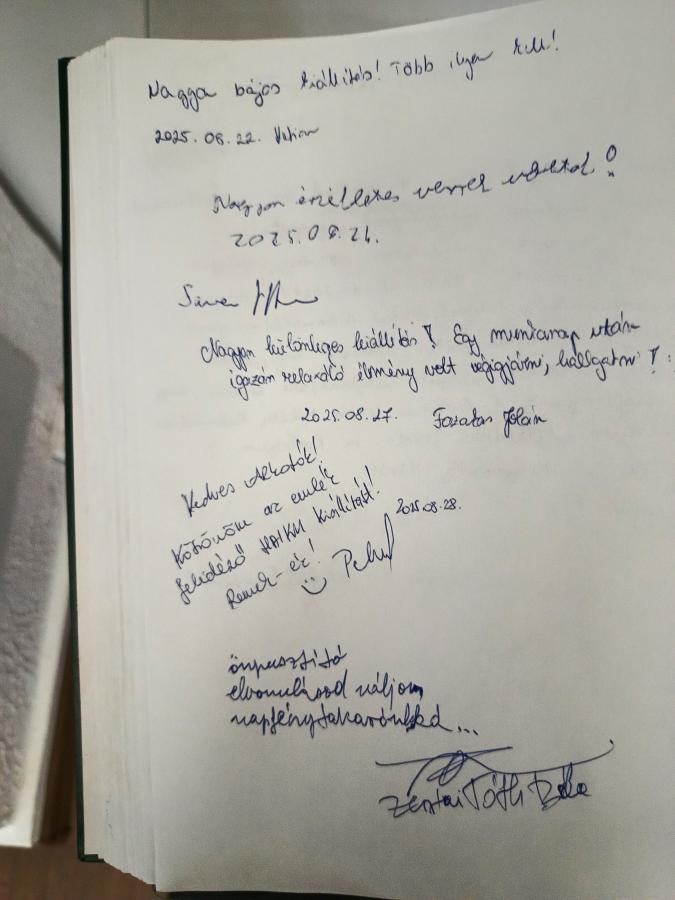 Nagyon bájos kiállítás! Több ilyen kell!
2025. 08. 22.
Nagyon érzelletes versek voltak!
2025. 08. 26.
Nagyon különleges kiállítás! Egy munkanap után
igazán relaxáló élmény volt végigjárni, hallgatni!
2025. 08. 27. Fazekas Jolán
Kedves Alkotók!
Köszönöm az emlék
felidéző HAIKU kiállítást!
Remek-ék! 2025.08.28.
önpusztító
elvonulásod váljon
napfénytakarónkká...
Zentai Tóth Béla